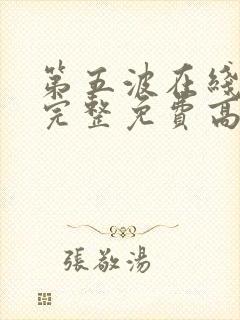 第五波在綫
完整免費高
張敬湯